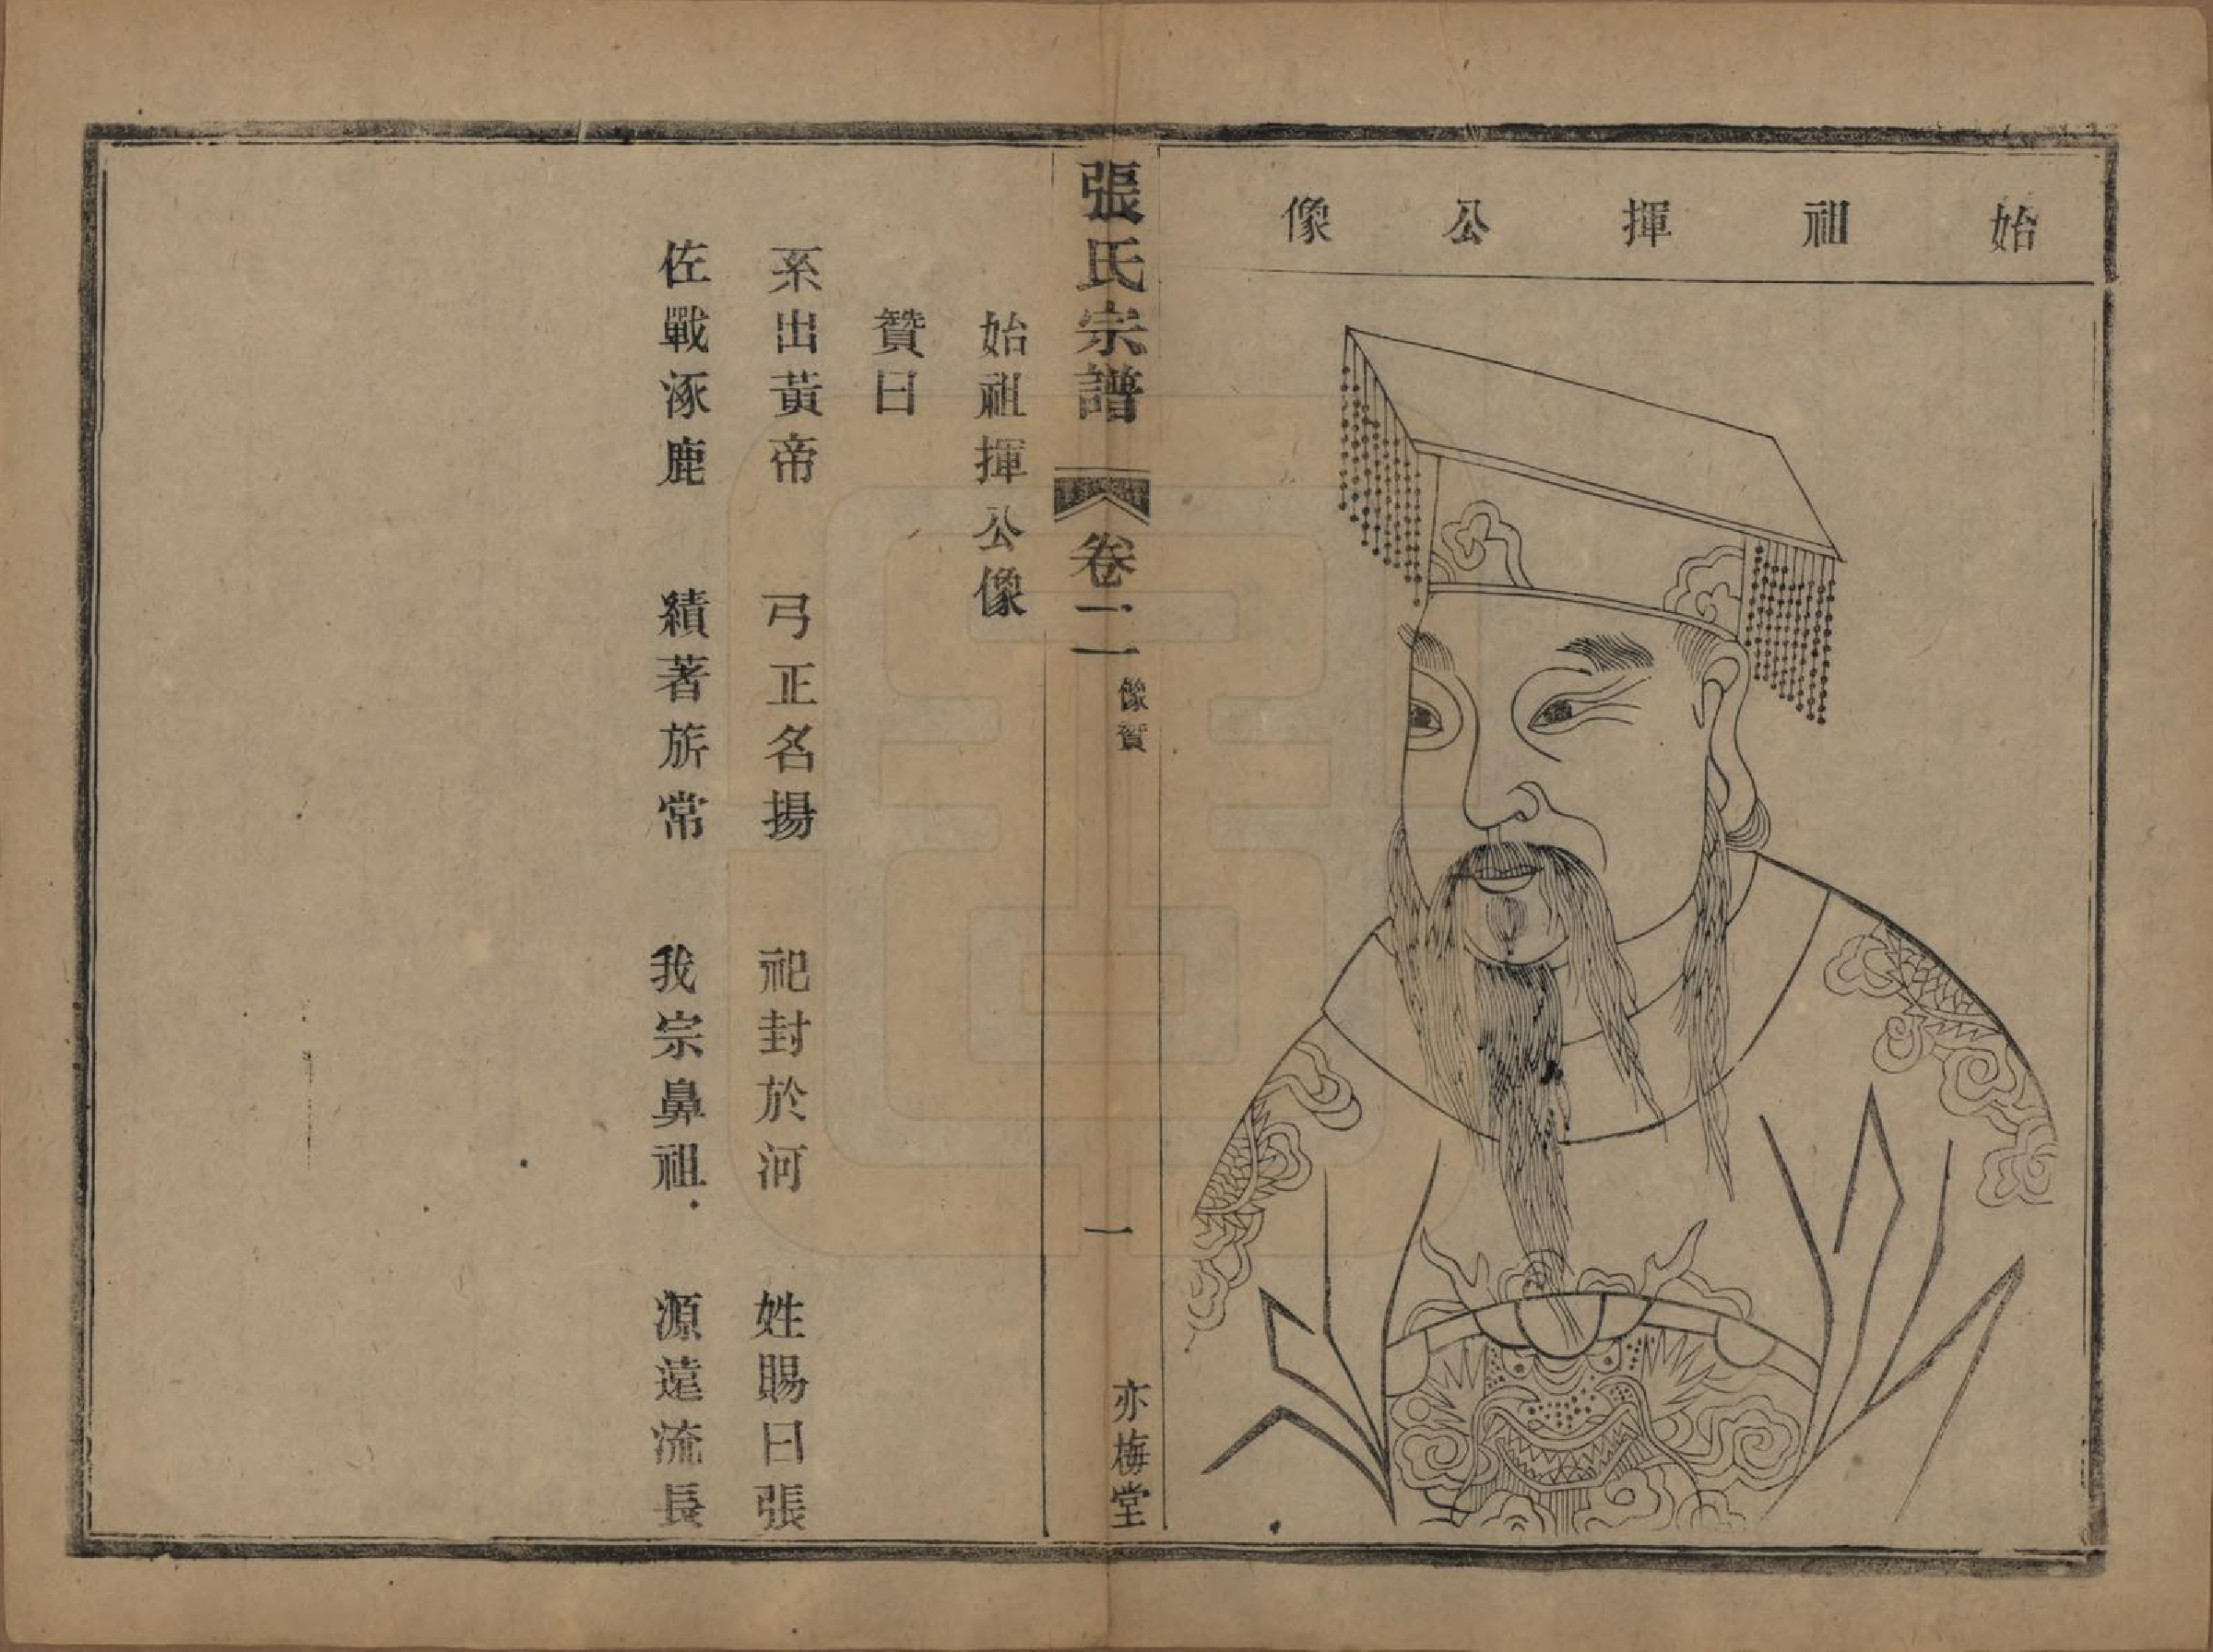 始祖揮公像
張氏宗譜
卷二
像贊
一
亦梅堂
始祖揮公像
贊曰
系出黃帝 弓正名揚 祀封於河 姓賜曰張
佐戰涿鹿 績著旂常 我宗鼻祖 源遠流長